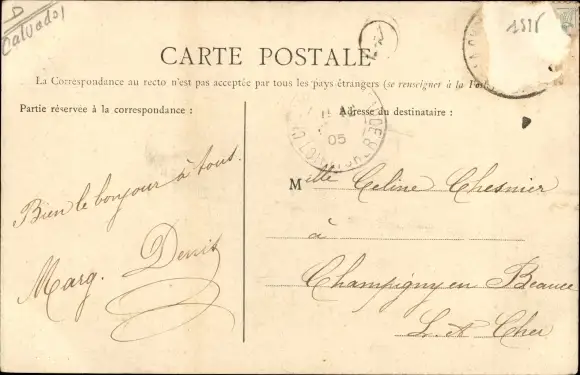 D
Calvados
1518
CARTE POSTALE
La Correspondance au recto n'est pas acceptée par tous les pays étrangers (se renseigner à la Poste
Partie réservée à la correspondance :
Adresse du destinataire :
05
LOIR-ET-CHER
Bien le bonjour à tous.
Marg. Denis
Melle Celine Chesnier
à
Champigny en Beauce
L. et Cher